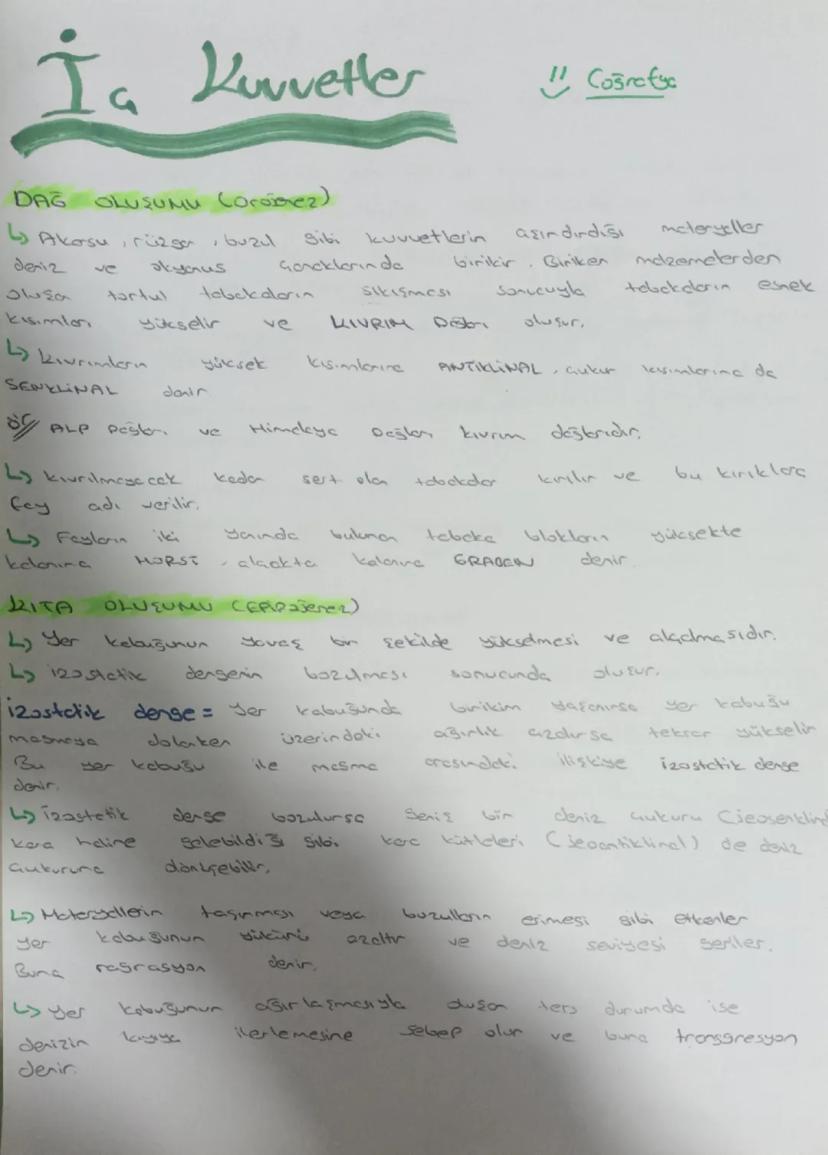 İç Kuvvetler
Coğrafya
DAĞ OLUŞUMU (Orojenez)
↳ Akarsu, rüzgar, buzul gibi kuvvetlerin aşındırdığı materyeller
deniz ve okyanus çanaklarında birikir. Biriken malzemelerden
oluşan tortul tabakaların sıkışması sonucuyla tabakaların esnek
kısımları yükselir ve KIVRIM Dağları oluşur.
↳ Kıvrımların yüksek kısımlarına ANTİKLİNAL, çukur kısımlarına da
SENKLİNAL denir
ÖR// ALP Dağları ve Himalaya Dağları kıvrım dağlarıdır.
↳ Kıvrılmayacak kadar sert olan tabakalar kırılır ve bu kırıklara
fay adı verilir.
↳ Fayların iki yanında bulunan tabaka blokların yüksekte
kalanına HORST, alçakta kalanına GRABEN denir.
KITA OLUŞUMU (EPİROJENEZ)
↳ Yer kabuğunun yavaş bir şekilde yükselmesi ve alçalmasıdır.
↳ izostatik dengenin bozulması sonucunda oluşur.
izostatik denge = Yer kabuğunda birikim yaşanırsa yer kabuğu
magmaya dalarken üzerindeki ağırlık azalırsa tekrar yükselir
Bu yer kabuğu ile magma arasındaki ilişkiye izostatik denge
denir.
↳ İzostatik denge bozulursa geniş bir deniz çukuru (jeosenklinal
kara haline gelebildiği gibi kara kütleleri (jeoantiklinal) de deniz
çukuruna dönüşebilir.
↳ Materyallerin taşınması veya buzulların erimesi gibi etkenler
yer kabuğunun yükünü azaltır ve deniz seviyesi geriler.
Buna regrasyon denir.
↳ Yer kabuğunun ağırlaşmasıyla oluşan ters durumda ise
denizin kıyıya ilerlemesine sebep olur ve buna transgresyon
denir.